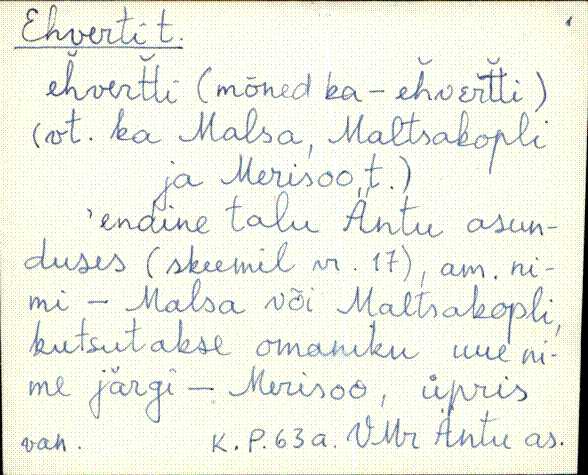 Ehverti t.
ehvertti (mõned ka - ehvertti)
(vt. ka Malsa, Maltsakopli
ja Merisoo t.)
'endine talu Äntu asun-
duses (skeemil nr. 17), am. ni-
mi - Malsa või Maltsakopli,
kutsutakse omaniku uue ni-
me järgi - Merisoo, üpris
van. K. P. 63 a. VMr Äntu as.